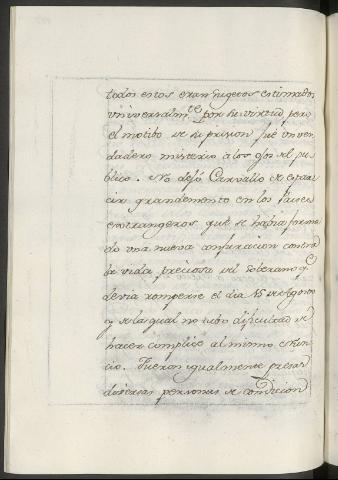 todos estos eran sugetos estimados
universalm.te por su virtud, pero
el motibo de su prision fue un ver
dadero misterio a los ojos del pu
blico. No dejó Carvallo de espar
cir grandemente en los Paises
extrangeros que se habia forma
do una nueva conjuracion contra
la vida preciosa del soberano q.e
devia romperse el dia 15 de Agosto
y de la qual no tubo dificultad de
hacer complice al mismo Nun
cio. Fueron igualmente presas
diversas personas de condicion